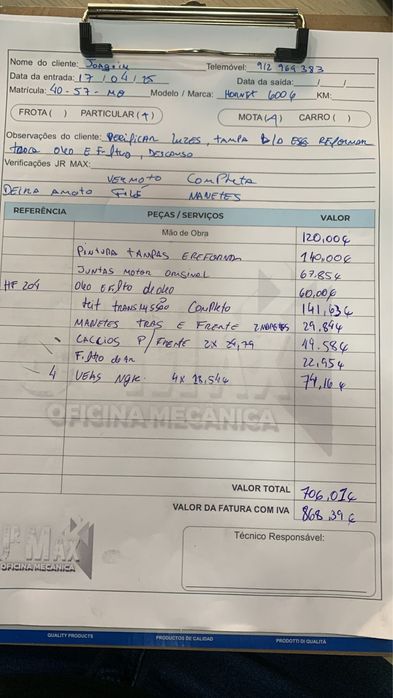 Nome do cliente: JOAQUIM Telemóvel: 912 969 383
Data da entrada: 17 / 04 / 25 Data da saída: / /
Matrícula: 40-57-MQ Modelo / Marca: HORNET 600 KM:
FROTA ( ) PARTICULAR ( ) MOTA ( ) CARRO ( )
Observações do cliente: VERIFICAR LUZES, TAMPA REFORMAR
TROCA OLEO E FILTRO, DESCANSO
Verificações JR MAX:
VER MOTO COMPLETA
DEIXA A MOTO MANETES
REFERÊNCIA PEÇAS / SERVIÇOS VALOR
Mão de Obra 120,00€
PINTURA TAMPAS E REFORMA 140,00€
JUNTAS MOTOR ORIGINAL 67.85€
HF 204 OLEO E FILTO DE OLEO 60,00€
KIT TRANSMISSÃO COMPLETO 141,63€
MANETES TRAS E FRENTE 29,84€
P/ FRENTE 2X 24,79 49.58€
FILTO DE AR 22,95€
4 VELAS NGK. 4X 18,54€ 74,16€
OFICINA MECÂNICA
VALOR TOTAL 706,01€
VALOR DA FATURA COM IVA 868,39€
Técnico Responsável:
JR MAX
OFICINA MECÂNICA
QUALITY PRODUCTS PRODUCTOS DE CALIDAD PRODOTTI DI QUALITÀ